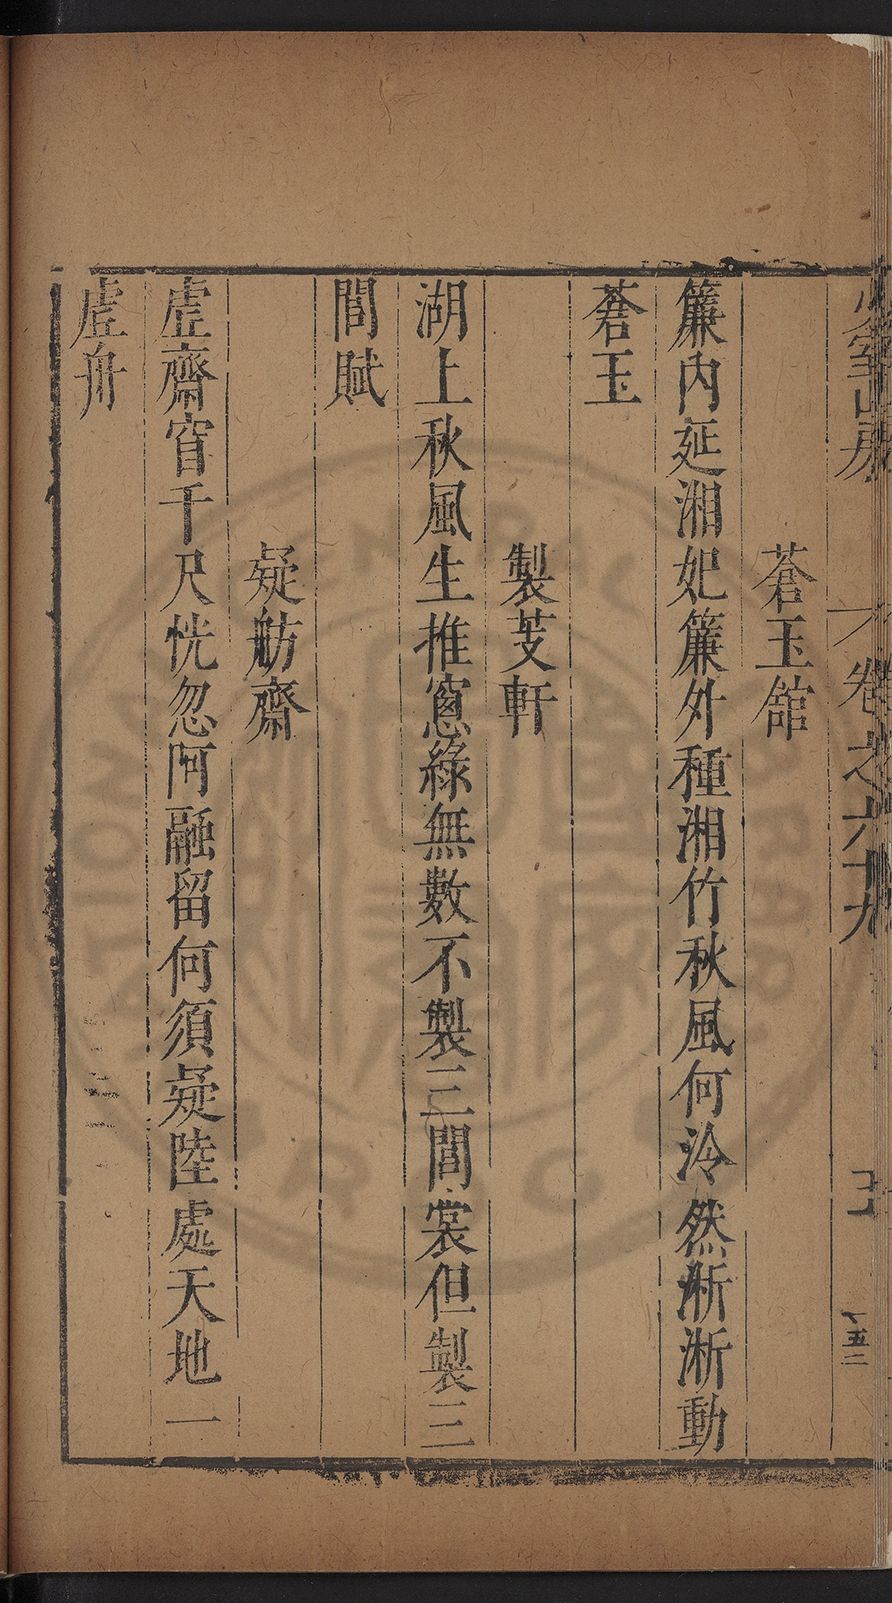 蒼玉館
簾內延湘妃簾外種湘竹秋風何泠然淅淅動
蒼玉
製芰軒
湖上秋風生推窻綠無數不製三閭裳但製三
閭賦
疑舫齋
虗齋窅千尺恍忽阿融留何須疑陸處天地一
虗舟
卷之六十九